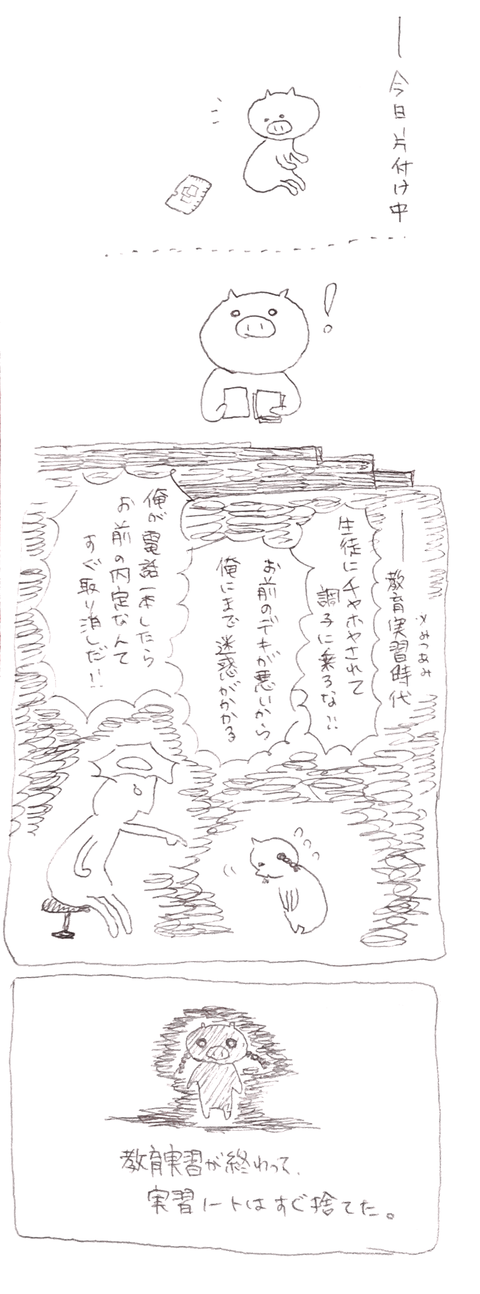 ― 今日片付け中
！
― 教育実習時代
※みつあみ
生徒にチヤホヤされて
調子に乗るな!!
お前のデキが悪いから
俺にまで迷惑がかかる
俺が電話一本したら
お前の内定なんて
すぐ取り消しだ!!
教育実習が終わって、
実習ノートはすぐ捨てた。